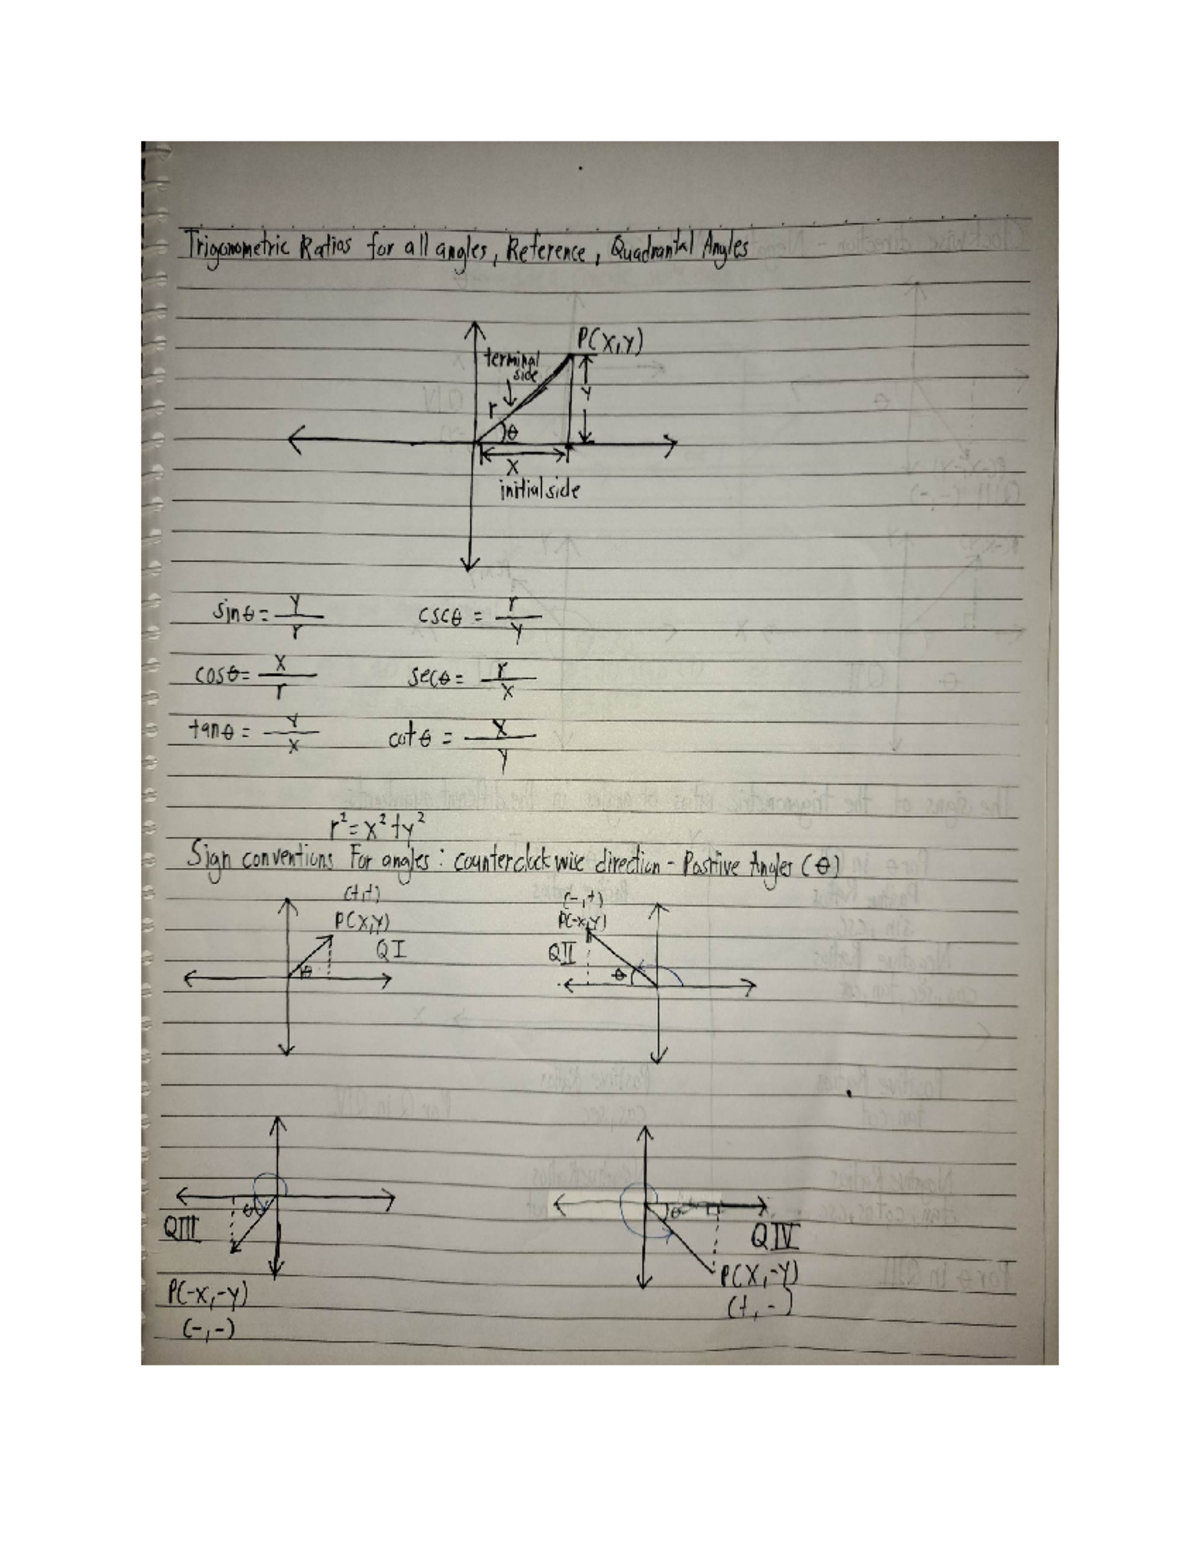 Trigonometric Ratios for all angles, Reference, Quadrantal Angles
P(x,y)
terminal
side
r
y
θ
x
initial side
sinθ = y/r cscθ = r/y
cosθ = x/r secθ = r/x
tanθ = y/x cotθ = x/y
r² = x² + y²
Sign conventions For angles : counterclockwise direction - Positive Angles (θ)
(+,+) (-,+)
P(x,y) P(-x,y)
QI QII
θ θ
θ θ
QIII QIV
P(-x,-y) P(x,-y)
(-,-) (+,-)